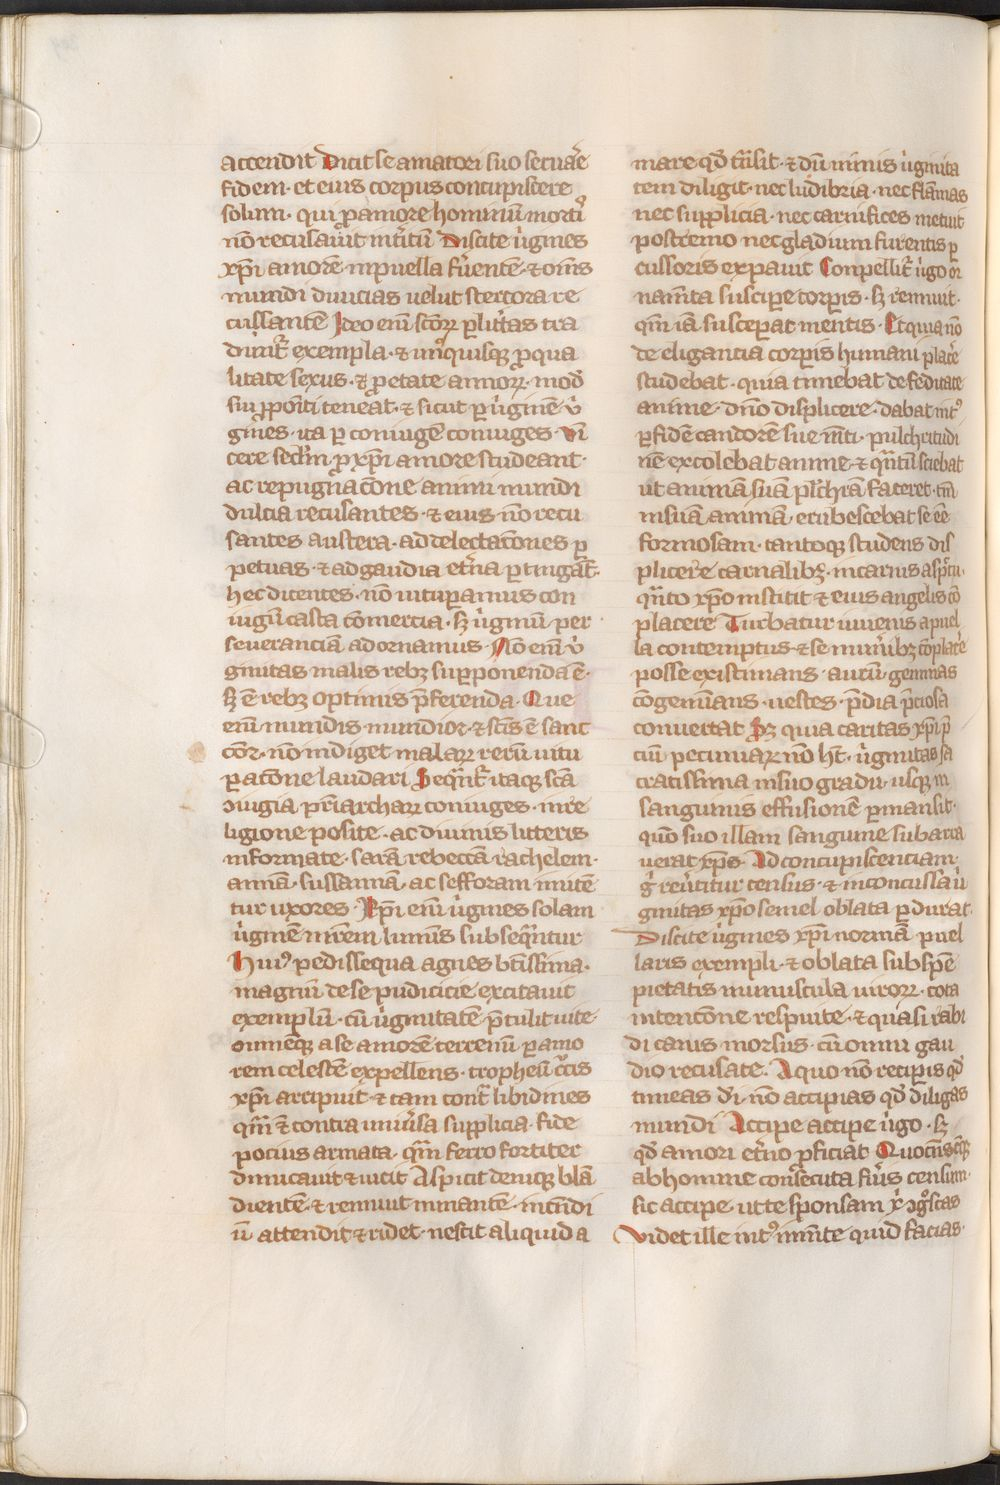 accendit Dicit se amatori suo seruare
fidem · et eius corpus concupiscere
solum · qui ꝓ amore hominum morti9
nō recusauit int̄itū Discite ụ̇gines
xp̄i amorē in puella fẏentē · ⁊ om̄s
mundi diuicias uelut stercora re
cussantē Ideo enī sc̄orꝝ ꝑ litt̄as tra
dūtr̄ exempla · ⁊ unꝰquisqꝫ ꝓ qua
litate sexus · ⁊ ꝓ etate annorꝝ · mod̄
sui ꝓpoīti teneat · ⁊ sicut ꝑ u̇ginē u̇
gines · ita ꝑ coniugē coniuges · vī
cere sec̄lm ꝓ xp̄i amore studeant ·
ac repugnac̄one animi mundi
dulcia recusantes · ⁊ eius nō recu
santes austera · ad delectac̄ones ꝑ
petuas · ⁊ ad gaudia et̄na ꝑtingāt̄ ·
hec dicentes · nō uituꝑamus con
iugiū casta cōmercia · sꝫ u̇ginū per
seueranciā adornamus · Nō enī u̇
ginitas malis rebꝫ supponenda ē ·
sꝫ ē rebꝫ optimis p̄ferenda · Que
enī mundis mundior · ⁊ sc̄is ē sanc
cōr · nō indiget malarꝝ rerū uitu
ꝑac̄one laudari Seqn̄tr̄ itaqꝫ sc̄a
ꝯiugia pr̄iarcharꝝ coniuges · in re
ligione posite · ac diuinis litteris
informate · sarā rebeccā rachelem ·
annā · sussannā · ac sefforam imitē
tur uxores · Xp̄i enī u̇gines solam
u̇ginē mr̄em luminīs subseqn̄tur
Huiꝰ pedissequa agnes bt̄issima ·
magnū de se pudicicie excitauit
exemplū · cū u̇ginitatē p̄tulit uite ·
omneqꝫ a se amorē terrenū ꝑ amo
rem celestē expellens · tropheū cr̄cis
xp̄i arripuit · ⁊ tam contr̄ libidines
qm̄ ⁊ contra uniu̇sa supplicia · fide
pocius armata · qm̄ ferro fortiter
dimicauit ⁊ uicit Aspicit deniqꝫ blā
dientē · ⁊ rennuit minantē · incēdi
ū attendit ⁊ ridet · nescit aliquid a
mare qd̄ tn̄sit · ⁊ dū nimis u̇ginita
tem diligit · nec ludibria · nec flāmas
nec supplicia · nec carnifices metuit
postremo nec gladium furentis ꝑ
cussoris expauit Conpellitr̄ u̇go or
nam̄ta suscipe corꝑis · sꝫ rennuit ·
qm̄ iā susceꝑat mentis · Et quia nō
de eligancia corꝑis humani plac̄e
studebat · quia timebat de feditate
anime · dn̄o displicere · dabat int̓
ꝑ fidē candorē sue mn̄ti · pulchritudi
nē excolebat anime · ⁊ qn̄tū sciebat
ut animā suā plc̄hrā faceret · tm̄
in suā animā · erubescebat se eē
formosam · tantoqꝫ studens dis
plicere carnalibꝫ · in carnis aspc̄tu ·
qn̄to xp̄o institit ⁊ eius angelis cō
placere Turbatur iuuenis a puel
la contemptus · ⁊ se mun̄ibꝫ cōplac̄e
posse existimans · aurū · gemmas
cōgeminans · uestes · p̄dia p̄ciosa
conuertat Sꝫ quia caritas xp̄i p̄
ciū pecuniarꝝ nō ht̄ · u̇ginitas sa
cratissima in suo gradu · usqꝫ in
sanguinis effusionē ꝑmansit ·
quō suo illam sanguine subarra
uerat xp̄s · Ad concupiscenciam
g̊ reu̇titur census · ⁊ inconcussa u̇
ginitas xp̄o semel oblata ꝑdurat ·
Discite u̇gines xp̄i normā puel
laris exempli · ⁊ oblata sub spē
pietatis munuscula uirorꝝ · tota
intenc̄one respuite · ⁊ quasi rabi
di canis morsus · cū omni gau
dio recusate · A quo nō recipis qd̄
timeas di̅ · nō accipias qd̄ diligas
mundi Accipe accipe u̇go · sꝫ
qd̄ amori et̄no ꝓficiat Quocūqꝫ
ab homine consecuta fuis̄ censum
sic accipe ut te sponsam xp̄i ꝯgn̊scas
Videt ille int̓ in mn̄te quid facias ·